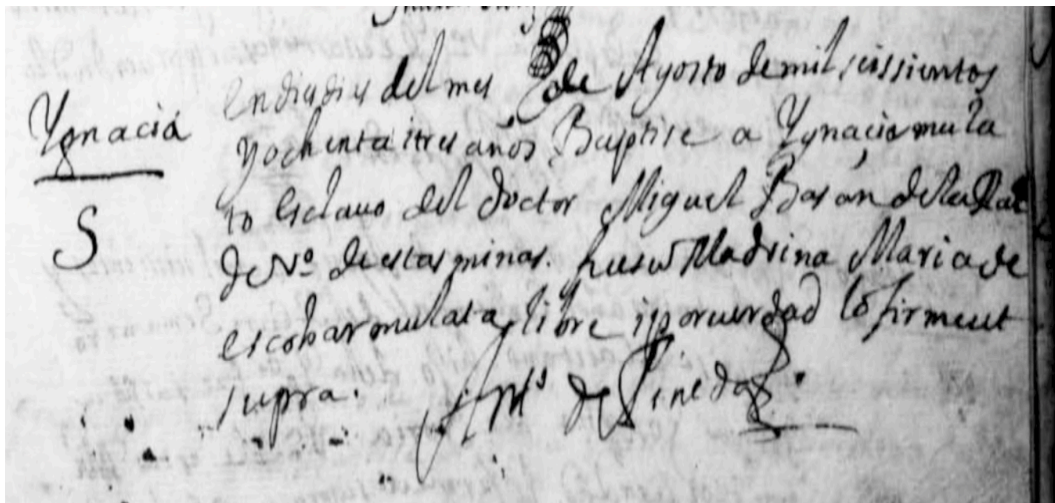 Ygnacia
S
en dies dias del mes de Agosto de mil seissientos
y ochenta i tres años Baptise a Ygnacio mula
to esclauo del doctor Miguel Basan dela
de Nº. de estas minas. su Madrina Maria de
escobar mulata libre i por uerdad lo firme ut
supra.